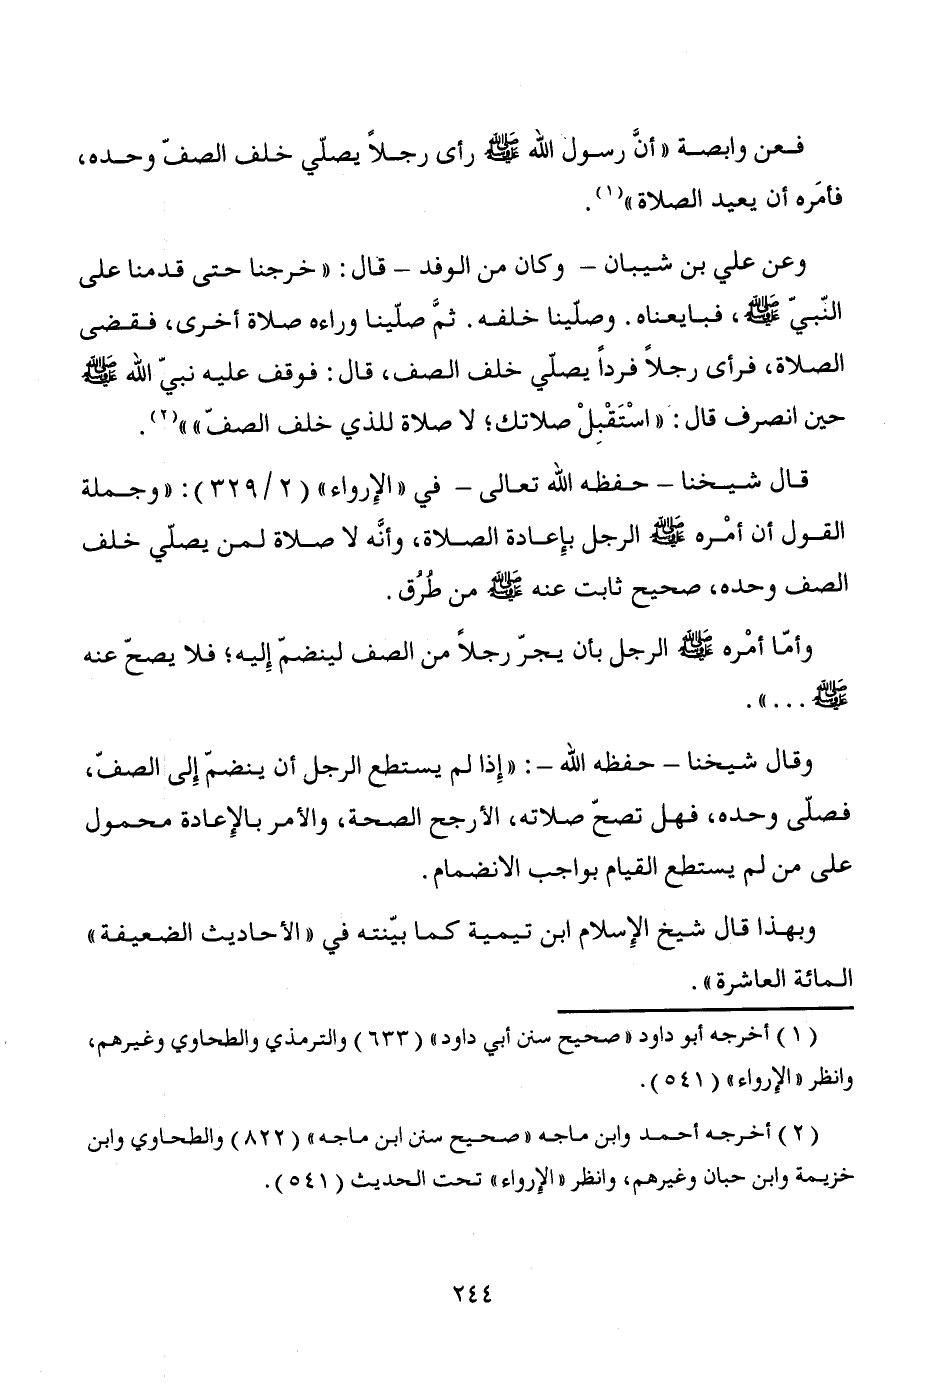 فعن وابصة «أنَّ رسول الله ﷺ رأى رجلاً يصلّي خلف الصفّ وحده،
فأمَره أن يعيد الصلاة»(١).
وعن علي بن شيبان – وكان من الوفد – قال: «خرجنا حتى قدمنا على
النّبيّ ﷺ، فبايعناه. وصلّينا خلفه. ثمَّ صلّينا وراءه صلاة أخرى، فقضى
الصلاة، فرأى رجلاً فرداً يصلّي خلف الصف، قال: فوقف عليه نبيّ الله ﷺ
حين انصرف قال: «اسْتَقْبِلْ صلاتك؛ لا صلاة للذي خلف الصفّ»»(٢).
قال شيخنا – حفظه الله تعالى – في «الإرواء» (٢/ ٣٢٩): «وجملة
القول أن أمْره ﷺ الرجل بإعادة الصلاة، وأنَّه لا صلاة لمن يصلّي خلف
الصف وحده، صحيح ثابت عنه ﷺ من طُرُق.
وأمّا أمْره ﷺ الرجل بأن يجرّ رجلاً من الصف لينضمّ إليه؛ فلا يصحّ عنه
ﷺ ...».
وقال شيخنا – حفظه الله –: «إذا لم يستطع الرجل أن ينضمّ إلى الصفّ،
فصلّى وحده، فهل تصحّ صلاته، الأرجح الصحة، والأمر بالإعادة محمول
على من لم يستطع القيام بواجب الانضمام.
وبهذا قال شيخ الإسلام ابن تيمية كما بيّنته في «الأحاديث الضعيفة»
المائة العاشرة».
(١) أخرجه أبو داود «صحيح سنن أبي داود» (٦٣٣) والترمذي والطحاوي وغيرهم،
وانظر «الإرواء» (٥٤١).
(٢) أخرجه أحمد وابن ماجه «صحيح سنن ابن ماجه» (٨٢٢) والطحاوي وابن
خزيمة وابن حبان وغيرهم، وانظر «الإرواء» تحت الحديث (٥٤١).
٢٤٤